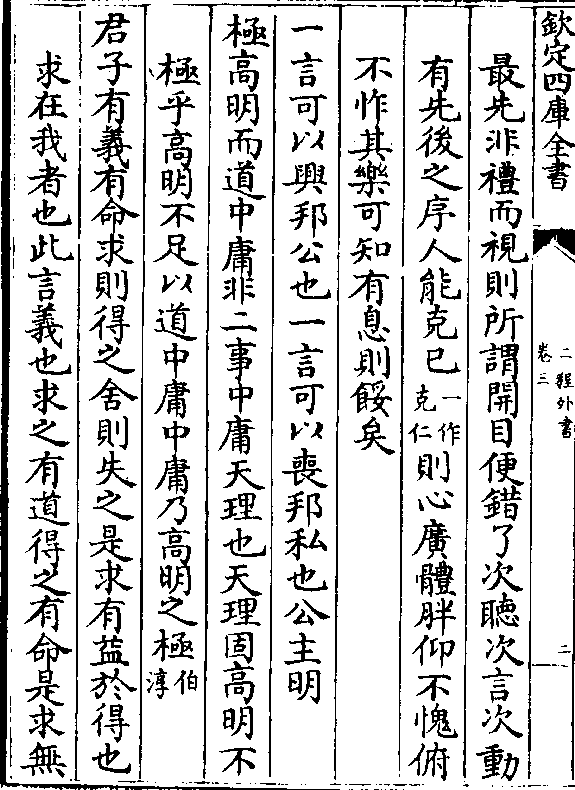 欽定四庫全書
二程外書
卷三
二
最先非禮而視則所謂開目便錯了次聽次言次動
有先後之序人能克己一作克仁則心廣體胖仰不愧俯
不怍其樂可知有息則餒矣
一言可以興邦公也一言可以喪邦私也公主明
極高明而道中庸非二事中庸天理也天理固高明不
極乎高明不足以道中庸中庸乃高明之極伯淳
君子有義有命求則得之舍則失之是求有益於得也
求在我者也此言義也求之有道得之有命是求無